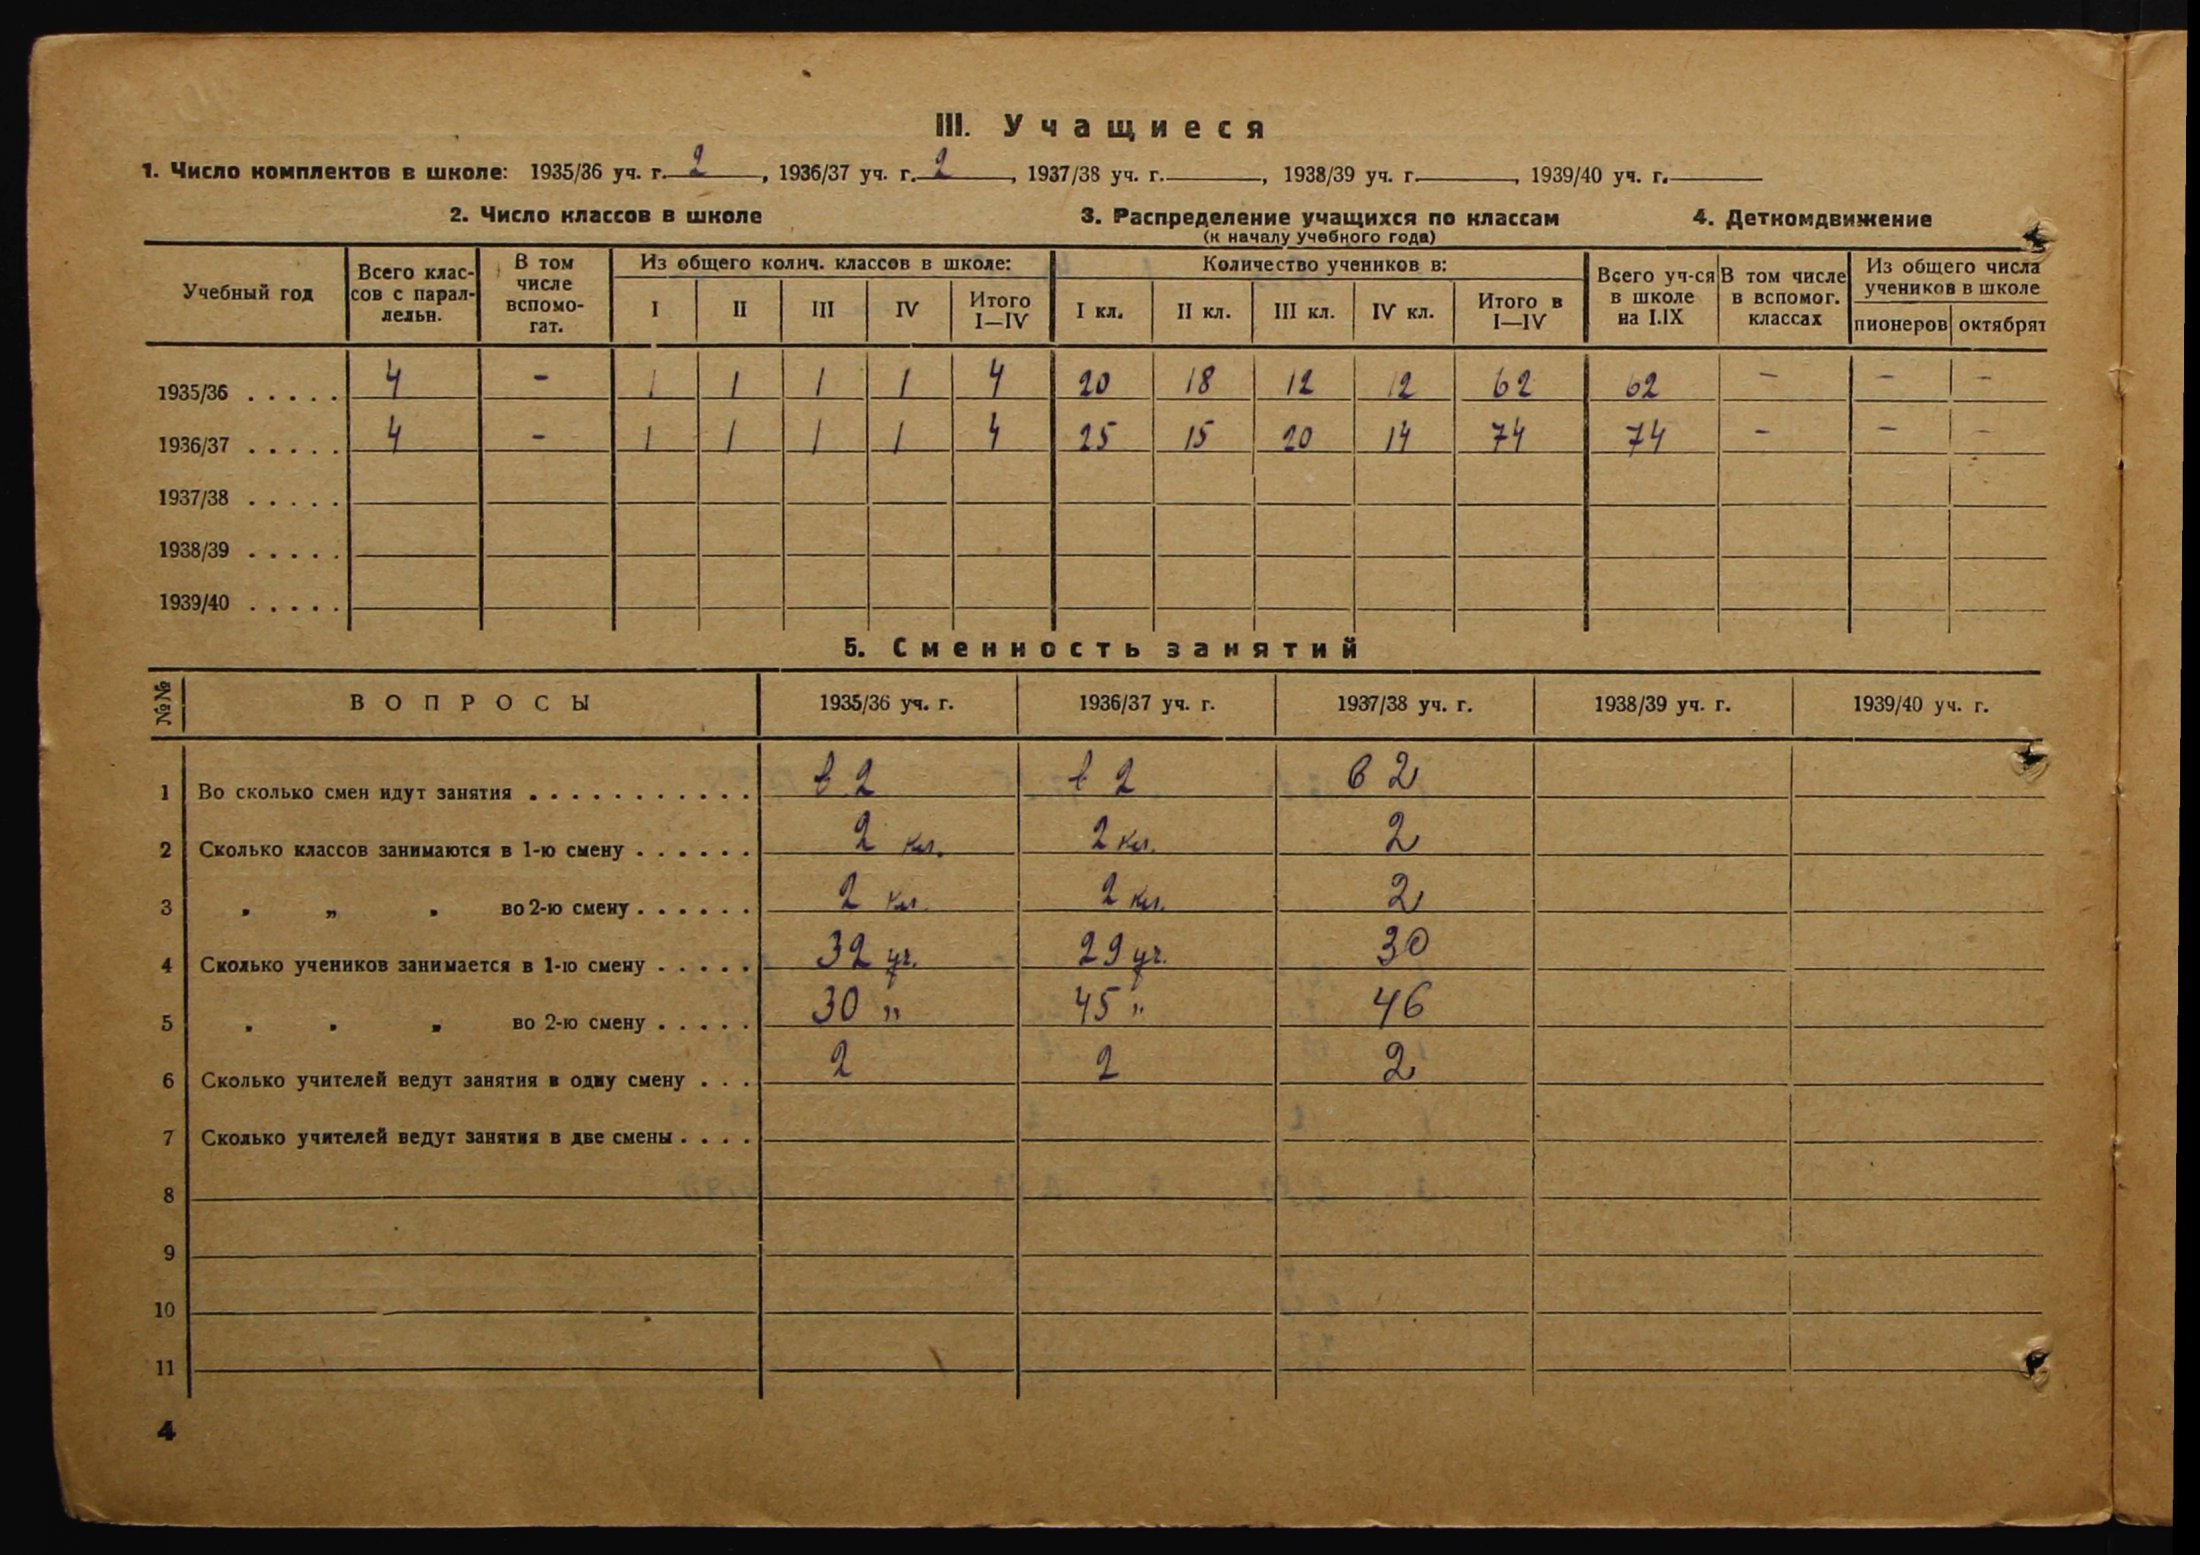 III. Учащиеся
1. Число комплектов в школе: 1935/36 уч. г. 2, 1936/37 уч. г. 2, 1937/38 уч. г. , 1938/39 уч. г. , 1939/40 уч. г.
2. Число классов в школе 3. Распределение учащихся по классам 4. Деткомдвижение
(к началу учебного года)
Учебный год
Всего клас-
сов с парал-
лельн.
В том
числе
вспомо-
гат.
Из общего колич. классов в школе:
I II III IV Итого
I—IV
Количество учеников в:
I кл. II кл. III кл. IV кл. Итого в
I—IV
Всего уч-ся
в школе
на I.IX
В том числе
в вспомог.
классах
Из общего числа
учеников в школе
пионеров октябрят
1935/36 . . . . . 4 - 1 1 1 1 4 20 18 12 12 62 62 - - -
1936/37 . . . . . 4 - 1 1 1 1 4 25 15 20 14 74 74 - - -
1937/38 . . . . .
1938/39 . . . . .
1939/40 . . . . .
5. Сменность занятий
№№ ВОПРОСЫ 1935/36 уч. г. 1936/37 уч. г. 1937/38 уч. г. 1938/39 уч. г. 1939/40 уч. г.
1 Во сколько смен идут занятия . . . . . . . . . . . в 2 в 2 в 2
2 Сколько классов занимаются в 1-ю смену . . . . . . 2 кл. 2 кл. 2
3 " „ " во 2-ю смену . . . . . . 2 кл. 2 кл. 2
4 Сколько учеников занимается в 1-ю смену . . . . . 32 уч. 29 уч. 30
5 " " " во 2-ю смену . . . . . 30 „ 45 „ 46
6 Сколько учителей ведут занятия в одну смену . . . 2 2 2
7 Сколько учителей ведут занятия в две смены . . . .
8
9
10
11
4